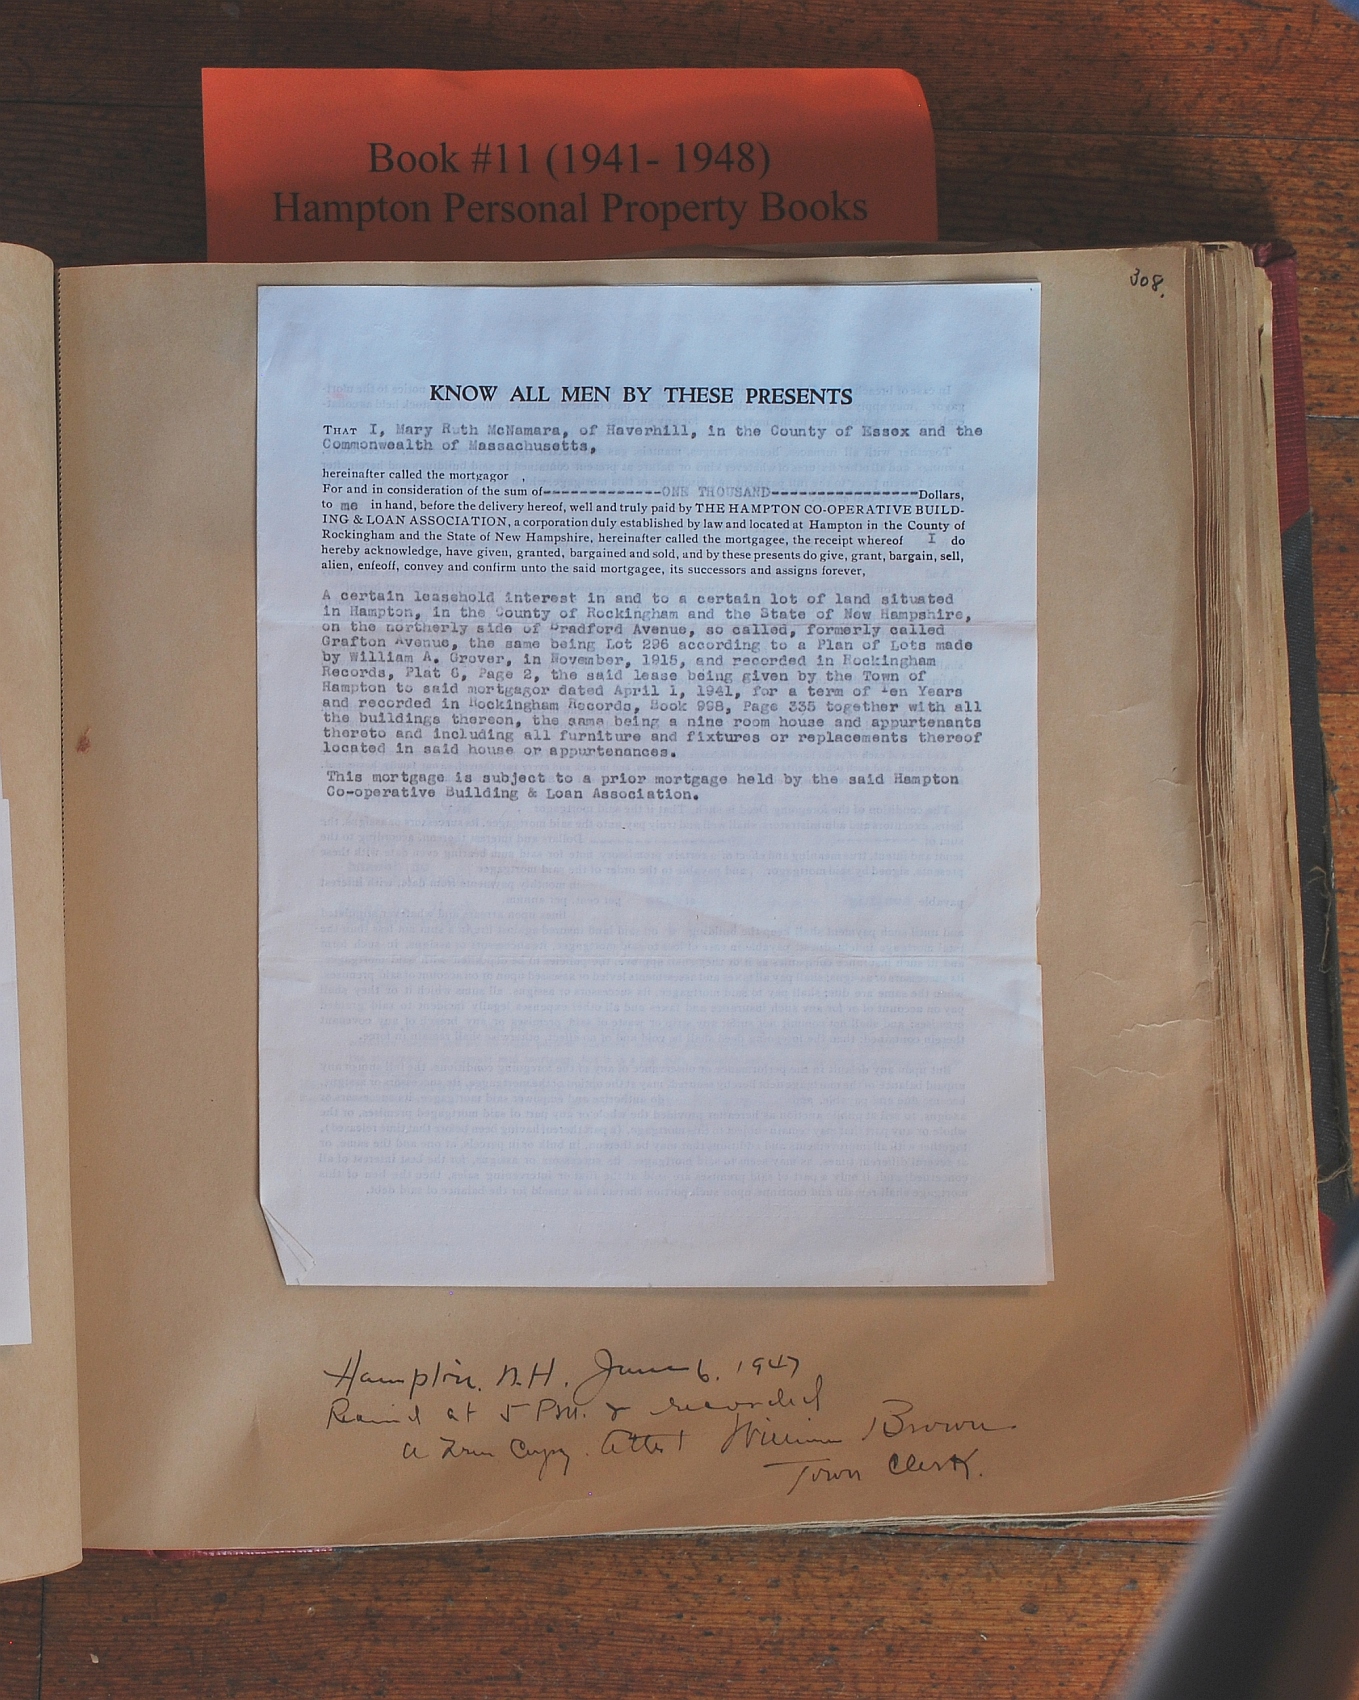 Book #11 (1941- 1948)
Hampton Personal Property Books
308.
KNOW ALL MEN BY THESE PRESENTS
THAT I, Mary Ruth McNamara, of Haverhill, in the County of Essex and the
Commonwealth of Massachusetts,
hereinafter called the mortgagor ,
For and in consideration of the sum of-------------ONE THOUSAND----------------Dollars,
to me in hand, before the delivery hereof, well and truly paid by THE HAMPTON CO-OPERATIVE BUILD-
ING & LOAN ASSOCIATION, a corporation duly established by law and located at Hampton in the County of
Rockingham and the State of New Hampshire, hereinafter called the mortgagee, the receipt whereof I do
hereby acknowledge, have given, granted, bargained and sold, and by these presents do give, grant, bargain, sell,
alien, enfeoff, convey and confirm unto the said mortgagee, its successors and assigns forever,
A certain leasehold interest in and to a certain lot of land situated
in Hampton, in the County of Rockingham and the State of New Hampshire,
on the northerly side of Bradford Avenue, so called, formerly called
Grafton Avenue, the same being Lot 296 according to a Plan of Lots made
by William A. Grover, in November, 1915, and recorded in Rockingham
Records, Plat C, Page 2, the said lease being given by the Town of
Hampton to said mortgagor dated April 1, 1941, for a term of Ten Years
and recorded in Rockingham Records, Book 998, Page 335 together with all
the buildings thereon, the same being a nine room house and appurtenants
thereto and including all furniture and fixtures or replacements thereof
located in said house or appurtenances.
This mortgage is subject to a prior mortgage held by the said Hampton
Co-operative Building & Loan Association.
Hampton. N.H. June 6. 1947
Rec'd at 5 P.M. & recorded
a True Copy. Attest William Brown
Town Clerk.